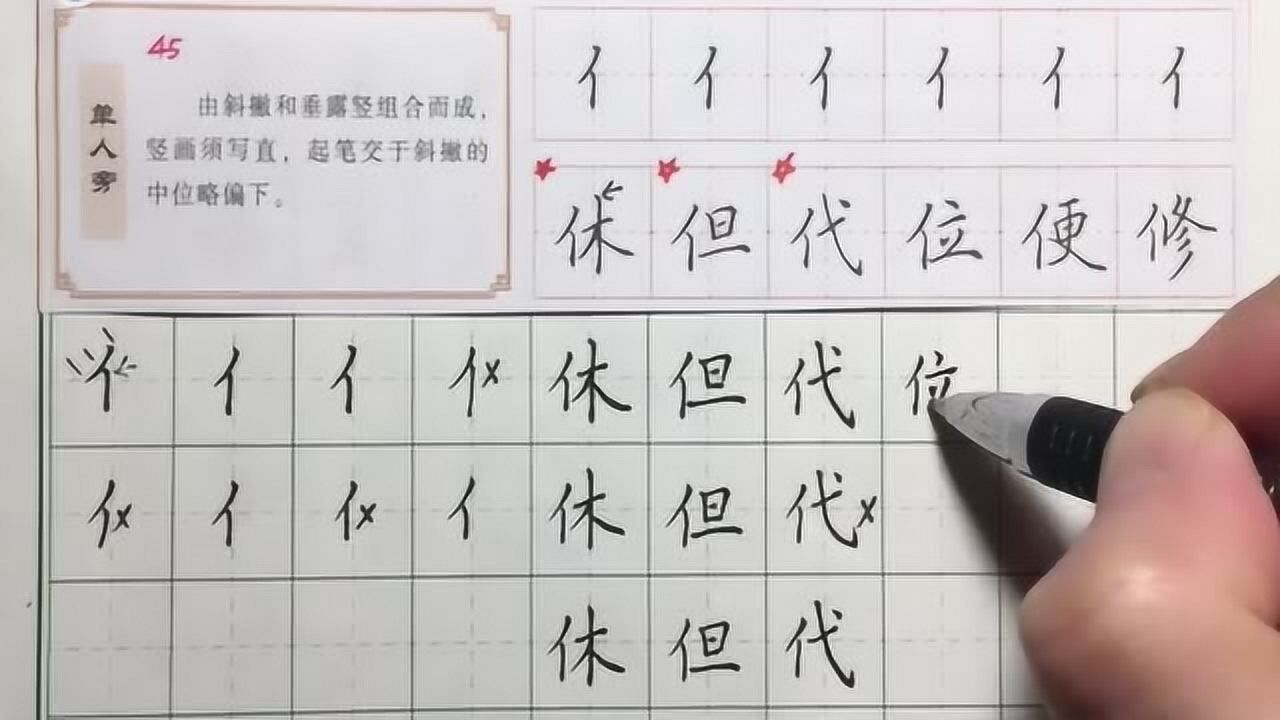 45
单人旁
由斜撇和垂露竖组合而成，
竖画须写直，起笔交于斜撇的
中位略偏下。
亻 亻 亻 亻 亻 亻
休 但 代 位 便 修
亻 亻 亻 亻× 休 但 代 位
亻× 亻 亻× 亻 休 但 代×
休 但 代